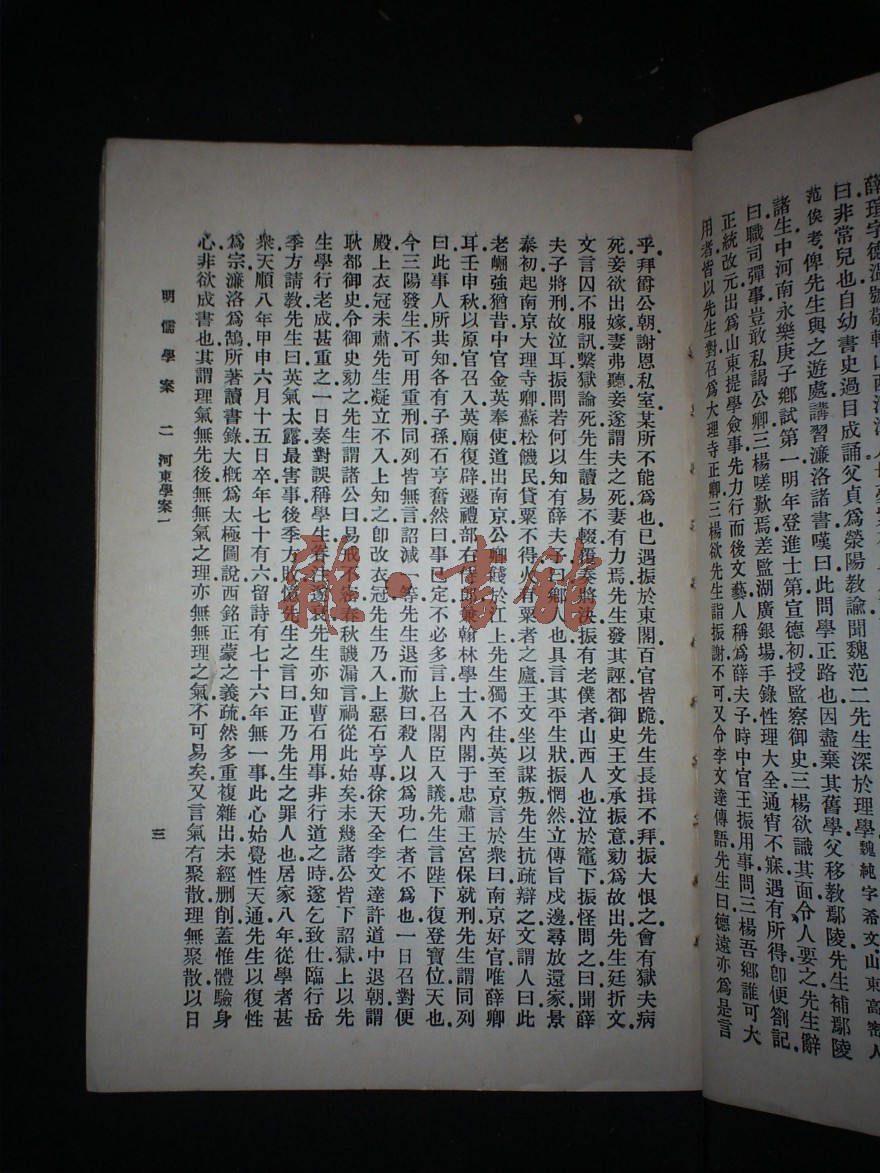 薛瑄字德溫號敬軒山西河津人
曰非常兒也自幼書史過目成誦父貞為滎陽教諭聞魏范二先生深於理學魏純字希文山東高密人
范俟考俾先生與之遊處講習濂洛諸書嘆曰此問學正路也因盡棄其舊學父移教鄢陵先生補鄢陵
諸生中河南永樂庚子鄉試第一明年登進士第宣德初授監察御史三楊欲識其面令人要之先生辭
曰職司彈事豈敢私謁公卿三楊嗟歎焉差監湖廣銀場手錄性理大全通宵不寐遇有所得卽便劄記
正統改元出為山東提學僉事先力行而後文藝人稱為薛夫子時中官王振用事問三楊吾鄉誰可大
用者皆以先生對召為大理寺正卿三楊欲先生詣振謝不可又令李文達傳語先生曰德遠亦為是言
乎拜爵公朝謝恩私室某所不能為也已遇振於東閣百官皆跪先生長揖不拜振大恨之會有獄夫病
死妾欲出嫁妻弗聽妾遂謂夫之死妻有力焉先生發其誣都御史王文承振意劾為故出先生廷折文
文言囚不服訊繫獄論死先生讀易不輟覆奏將決振有老僕者山西人也泣於竈下振怪問之曰聞薛
夫子將刑故泣耳振問若何以知有薛夫子曰鄉人也具言其平生狀振惘然立傳旨戍邊尋放還家景
泰初起南京大理寺卿蘇松饑民貸粟不得火有粟者之廬王文坐以謀叛先生抗疏辯之文謂人曰此
老崛強猶昔中官金英奉使道出南京公卿餞於江上先生獨不往英至京言於衆曰南京好官唯薛卿
耳壬申秋以原官召入英廟復辟遷禮部右侍郎兼翰林學士入內閣于忠肅王宮保就刑先生謂同列
曰此事人所共知各有子孫石亨奮然曰事已定不必多言上召閣臣入議先生言陛下復登寶位天也
今三陽發生不可用重刑同列皆無言詔減一等先生退而歎曰殺人以為功仁者不為也一日召對便
殿上衣冠未肅先生凝立不入上知之卽改衣冠先生乃入上惡石亨專徐天全李文達許道中退朝謂
耿都御史令御史劾之先生謂諸公曰易戒不密春秋譏漏言禍從此始矣未幾諸公皆下詔獄上以先
生學行老成甚重之一日奏對誤稱學生眷注遂衰先生亦知曹石用事非行道之時遂乞致仕臨行岳
季方請教先生曰英氣太露最害事後季方敗憶先生之言曰正乃先生之罪人也居家八年從學者甚
衆天順八年甲申六月十五日卒年七十有六留詩有七十六年無一事此心始覺性天通先生以復性
為宗濂洛為鵠所著讀書錄大概為太極圖說西銘正蒙之義疏然多重複雜出未經刪削蓋惟體驗身
心非欲成書也其謂理氣無先後無無氣之理亦無無理之氣不可易矣又言氣有聚散理無聚散以日
明儒學案 二 河東學案一
三
龍·書館